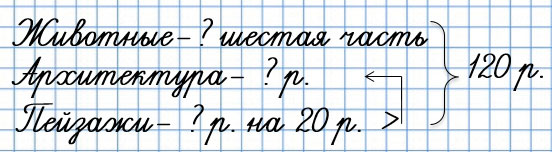 Животные – ? шестая часть
Архитектура – ? р.
Пейзажи – ? р. на 20 р. >
120 р.